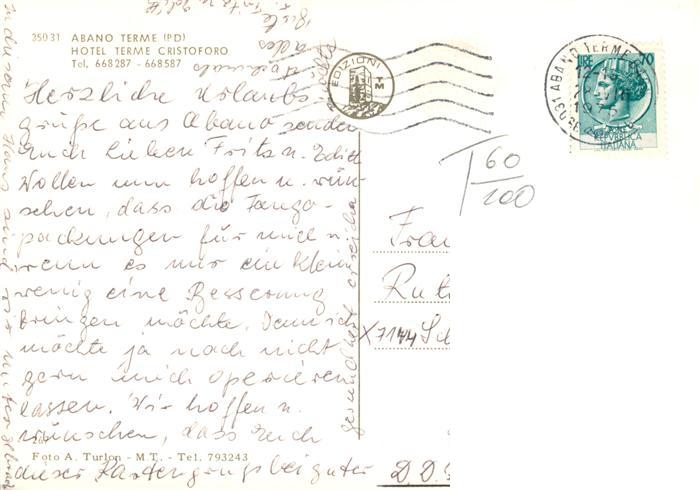 35031 ABANO TERME (PD)
HOTEL TERME CRISTOFORO
Tel. 668287 - 668587
EDIZIONI
TM
ABANO TERME
LIRE 70
REPVBBLICA
ITALIANA
T 60/100
Herzliche Urlaubs
grüße aus Abano sendet
Euch lieben Fritz u. Edith
Wollen nun hoffen u. wün-
schen, dass die Fango-
packungen für mich u.
wenn es nur ein klein
wenig eine Besserung
bringen möchte. Denn ich
möchte ja noch nicht
gern mich operieren
lassen. Wir hoffen u.
wünschen, dass Euch
dieser Kartengruß bei guter
Gesundheit erreiche
Frau
Rut
X7144 Sch
D.D.
Foto A. Turlon - M.T. - Tel. 793243